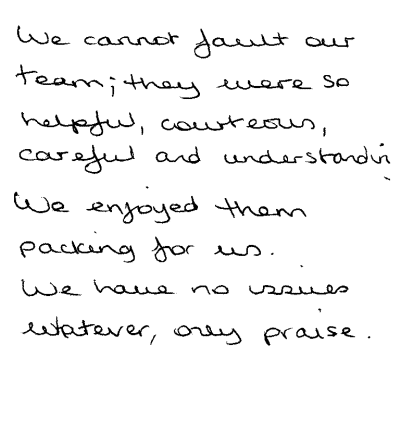 We cannot fault our
team; they were so
helpful, courteous,
careful and understandin
We enjoyed them
packing for us.
We have no issues
whatever, only praise.